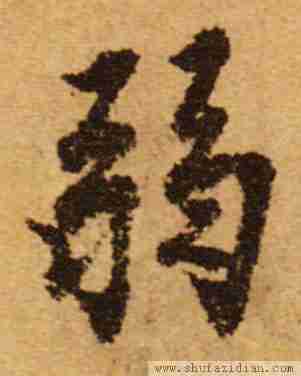 弱
www.shufazidian.com